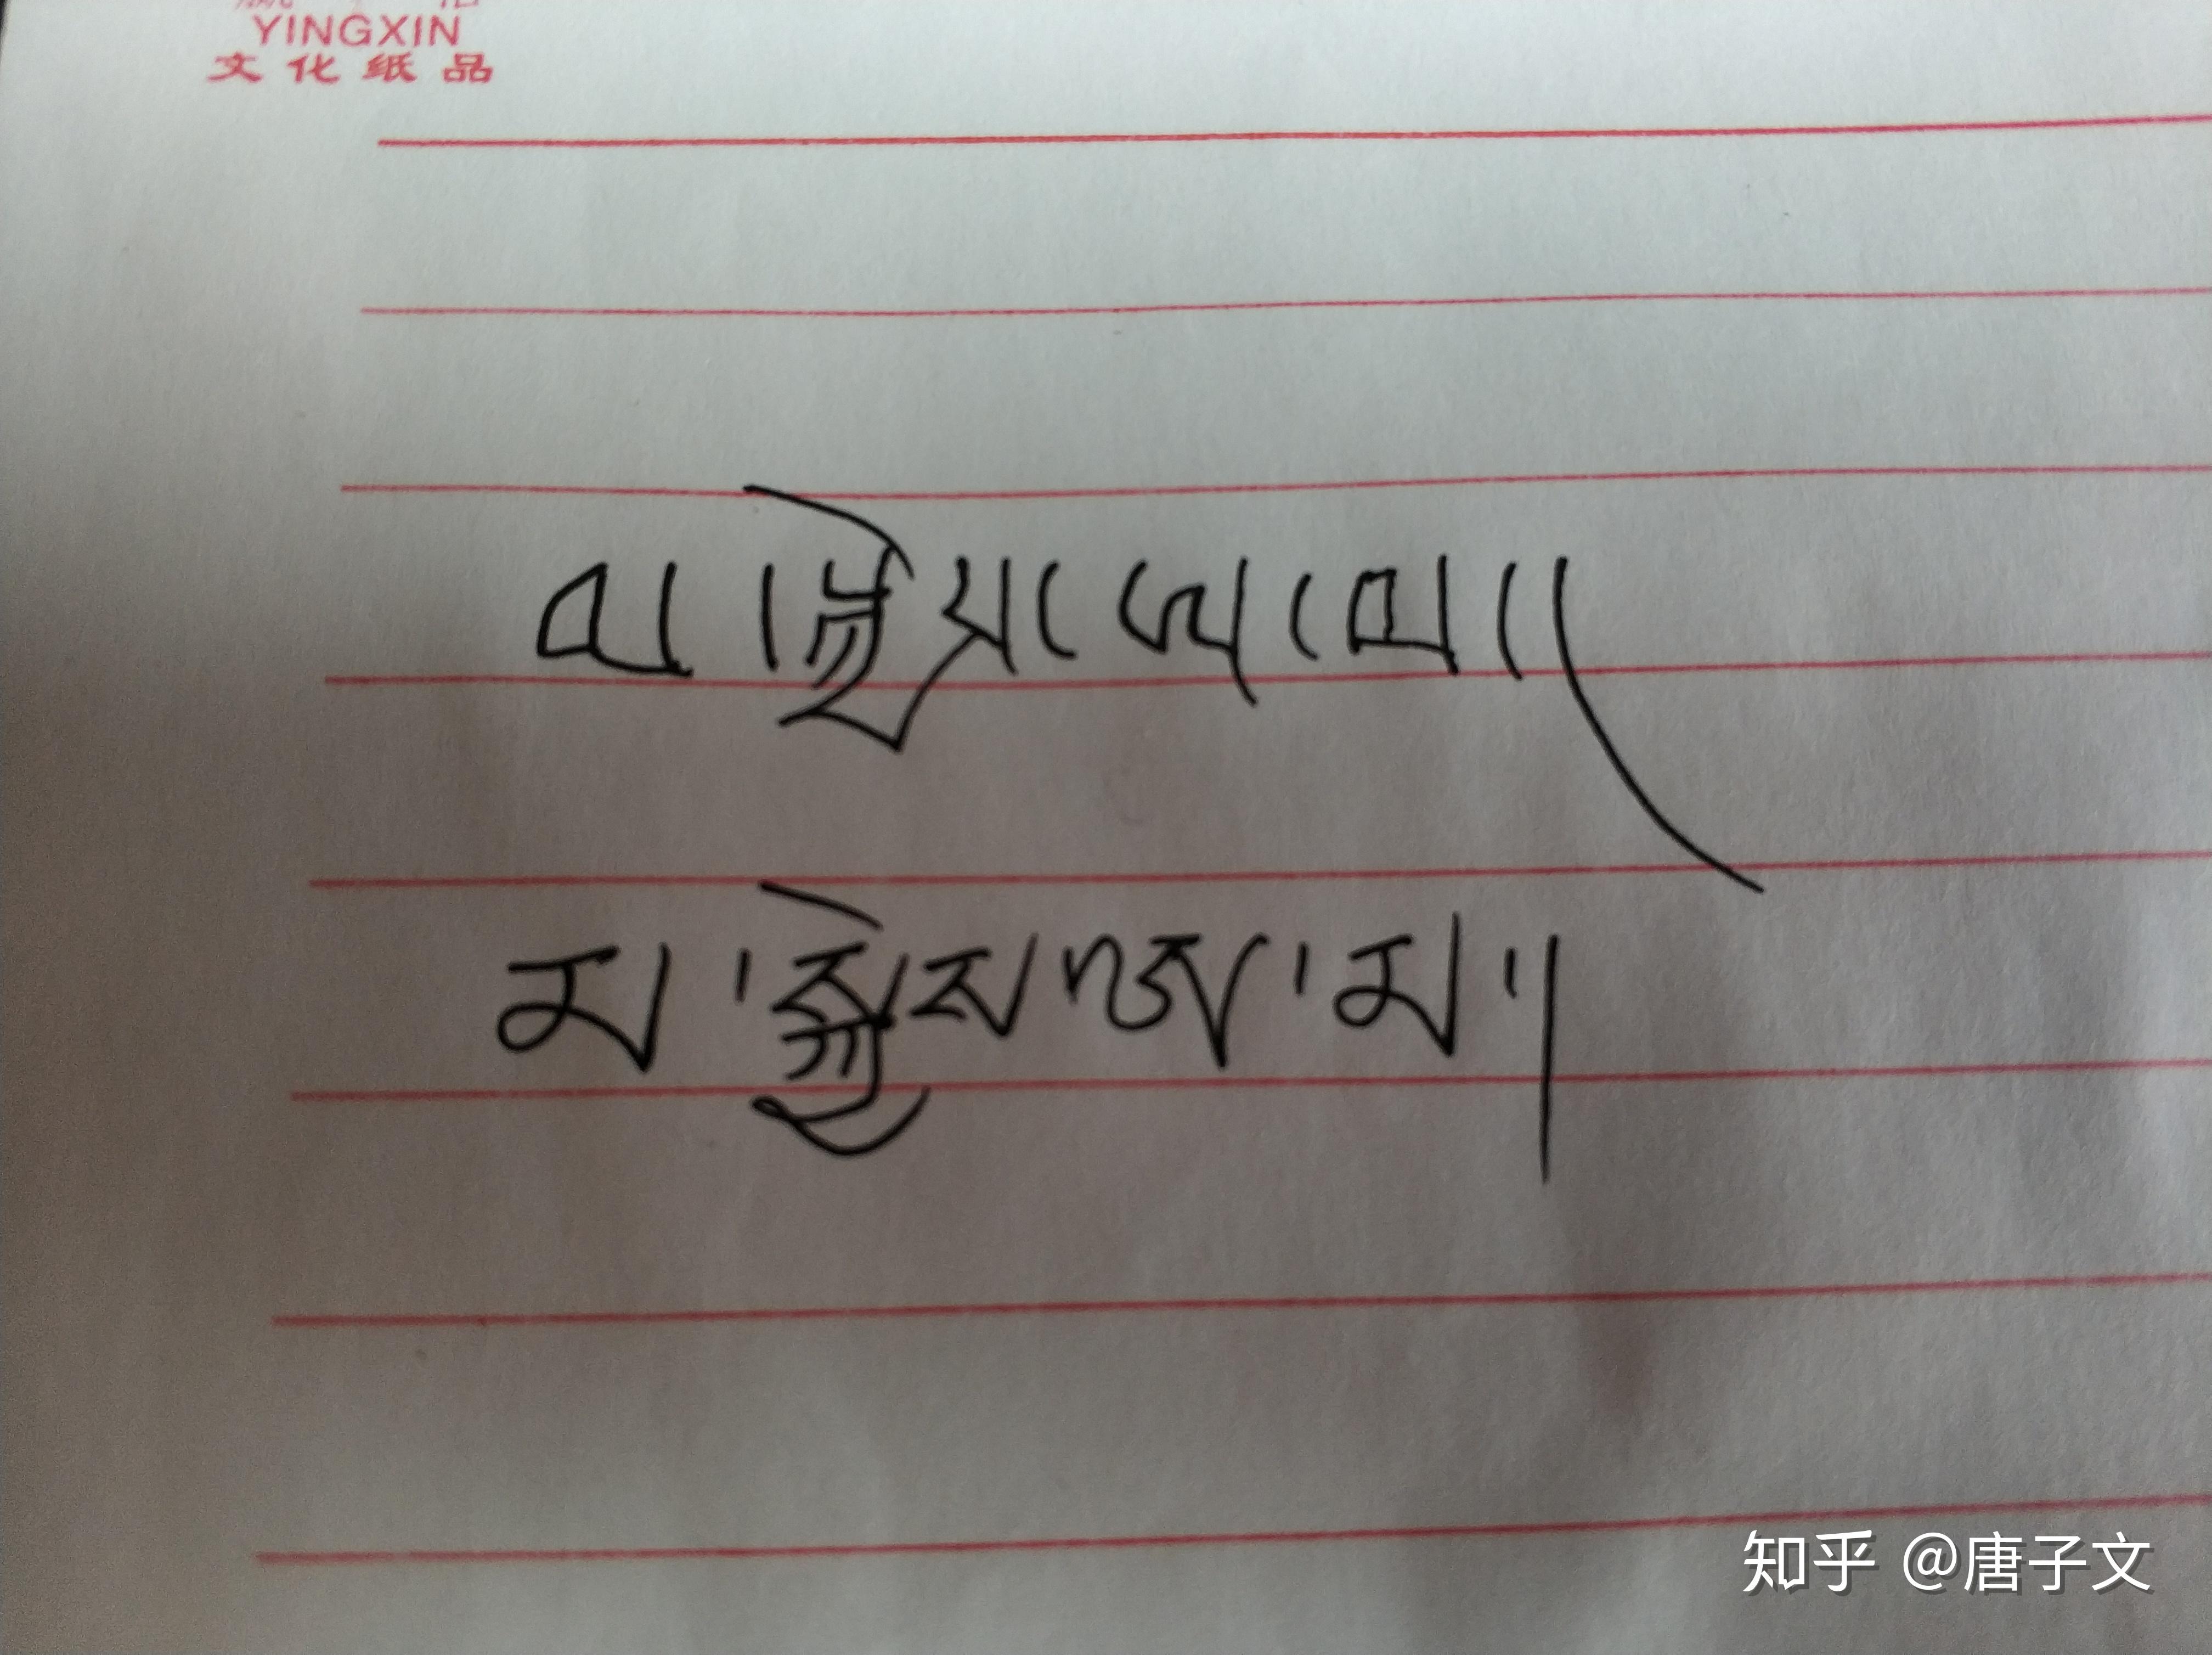 YINGXIN
文化纸品
མ་སྐྱེས་ཨ་མ།
མ་སྐྱེས་ཨ་མ།
知乎 @唐子文